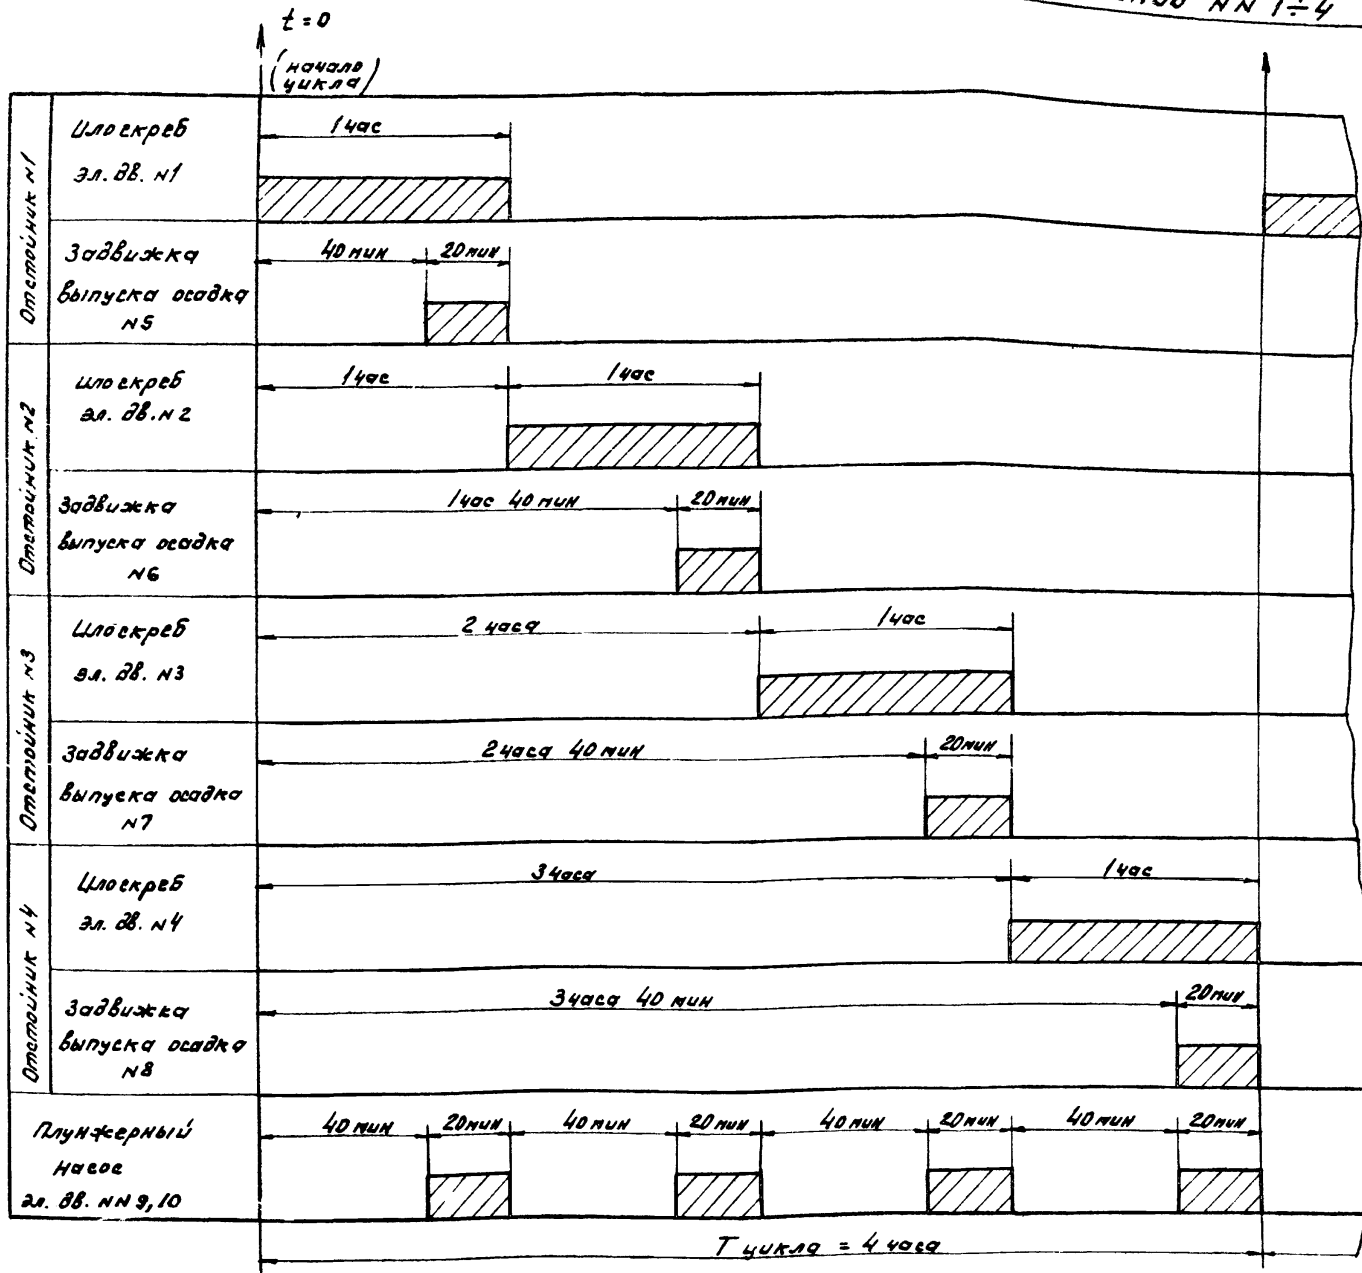 NN 1÷4
t = 0
(начало
цикла)
Отстойник N1
Илоскреб
эл. дв. N1
1 час
Задвижка
выпуска осадка
N5
40 мин
20 мин
Отстойник N2
Илоскреб
эл. дв. N2
1 час
1 час
Задвижка
выпуска осадка
N6
1 час 40 мин
20 мин
Отстойник N3
Илоскреб
эл. дв. N3
2 часа
1 час
Задвижка
выпуска осадка
N7
2 часа 40 мин
20 мин
Отстойник N4
Илоскреб
эл. дв. N4
3 часа
1 час
Задвижка
выпуска осадка
N8
3 часа 40 мин
20 мин
Плунжерный
насос
эл. дв. NN 9,10
40 мин
20 мин
40 мин
20 мин
40 мин
20 мин
40 мин
20 мин
Т цикла = 4 часа